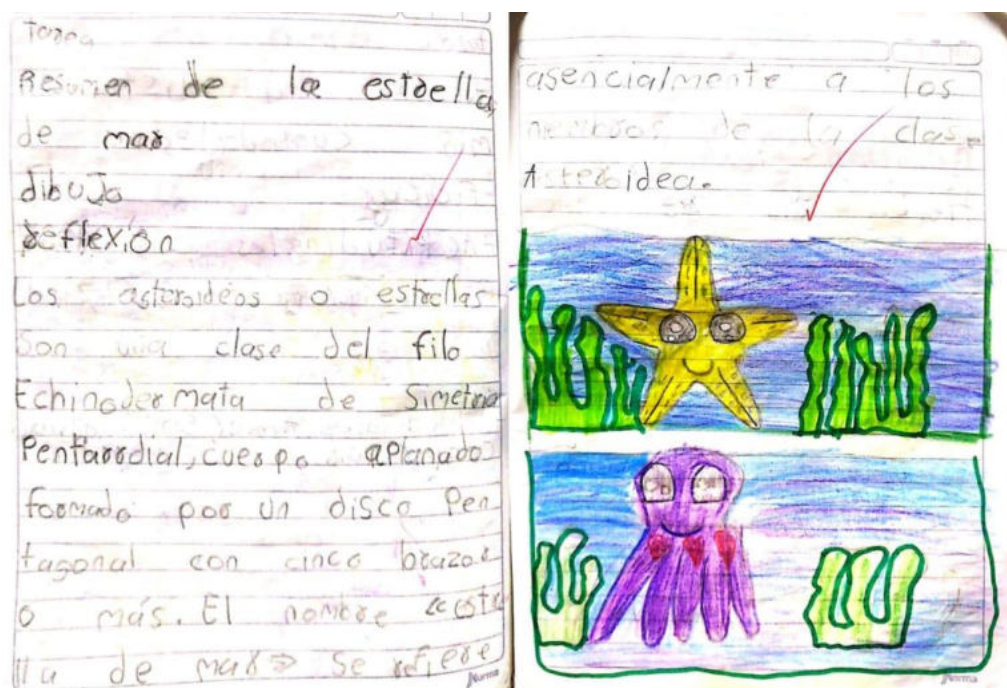 Tarea
Resumen de la estrella
de mar
dibujo
reflexión
Los asteroideos o estrellas
Son una clase del filo
Echinodermata de Simetria
Pentarradial, cuerpo aplanado
formado por un disco Pen
tagonal con cinco brazos
o más. El nombre «estre
lla de mar» Se refiere
Norma
asencialmente a los
miembros de la clase
Asteroidea.
Norma